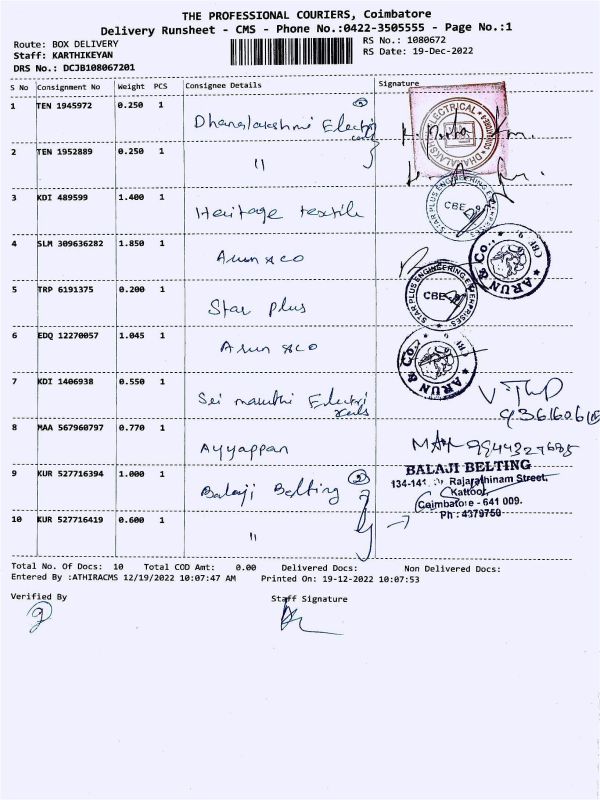 THE PROFESSIONAL COURIERS, Coimbatore
Delivery Runsheet - CMS - Phone No.:0422-3505555 - Page No.:1
Route: BOX DELIVERY
RS No.: 1080672
Staff: KARTHIKEYAN
RS Date: 19-Dec-2022
DRS No.: DCJB108067201
S No Consignment No Weight PCS Consignee Details Signature
1 TEN 1945972 0.250 1 Dhanalakshmi Electri cals 2
2 TEN 1952889 0.250 1 "
3 KDI 489599 1.400 1 Heritage textile
4 SLM 309636282 1.850 1 Arun & CO
5 TRP 6191375 0.200 1 Star Plus
6 EDQ 12270057 1.045 1 Arun & CO
7 KDI 1406938 0.550 1 Sei maruthi Electri cals
8 MAA 567960797 0.770 1 Ayyappan
9 KUR 527716394 1.000 1 Balaji Belting 2
10 KUR 527716419 0.600 1 "
STAR PLUS ENGINEERING ENTERPRISES
CBE
ARUN & CO., CBE 9
STAR PLUS ENGINEERING ENTERPRISES
CBE
ARUN & CO., CBE 9
BALAJI BELTING
Rajarathinam Street,
Kattoor,
Coimbatore - 641 009.
Ph : 4379750
Total No. Of Docs: 10 Total COD Amt: 0.00 Delivered Docs: Non Delivered Docs:
Entered By :ATHIRACMS 12/19/2022 10:07:47 AM Printed On: 19-12-2022 10:07:53
Verified By
Staff Signature